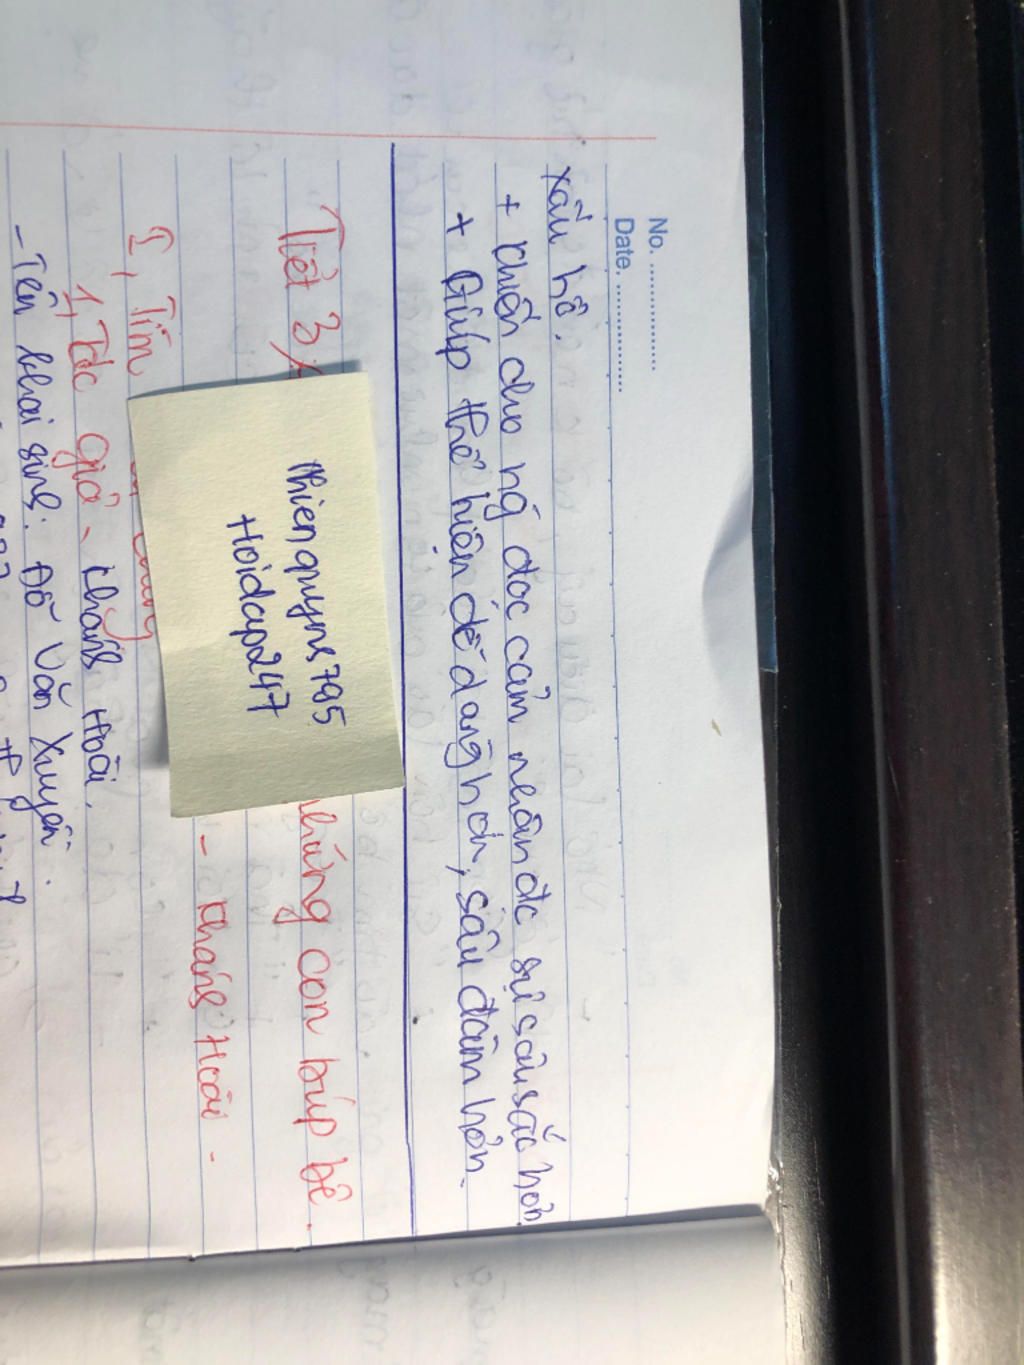 No. ..................
Date. ..................
xấu hổ.
+ khiến cho ng đọc cảm nhận đc sự sâu sắc hơn
+ Giúp thể hiện dễ dàng hơn, sâu đậm hơn.
Tiết 3, những con búp bê.
- Khánh Hoài -
I, Tìm chung
1, Tác giả - Khánh Hoài.
- Tên khai sinh: Đỗ Văn Xuyền.
nhienquynh795
Hoidap247